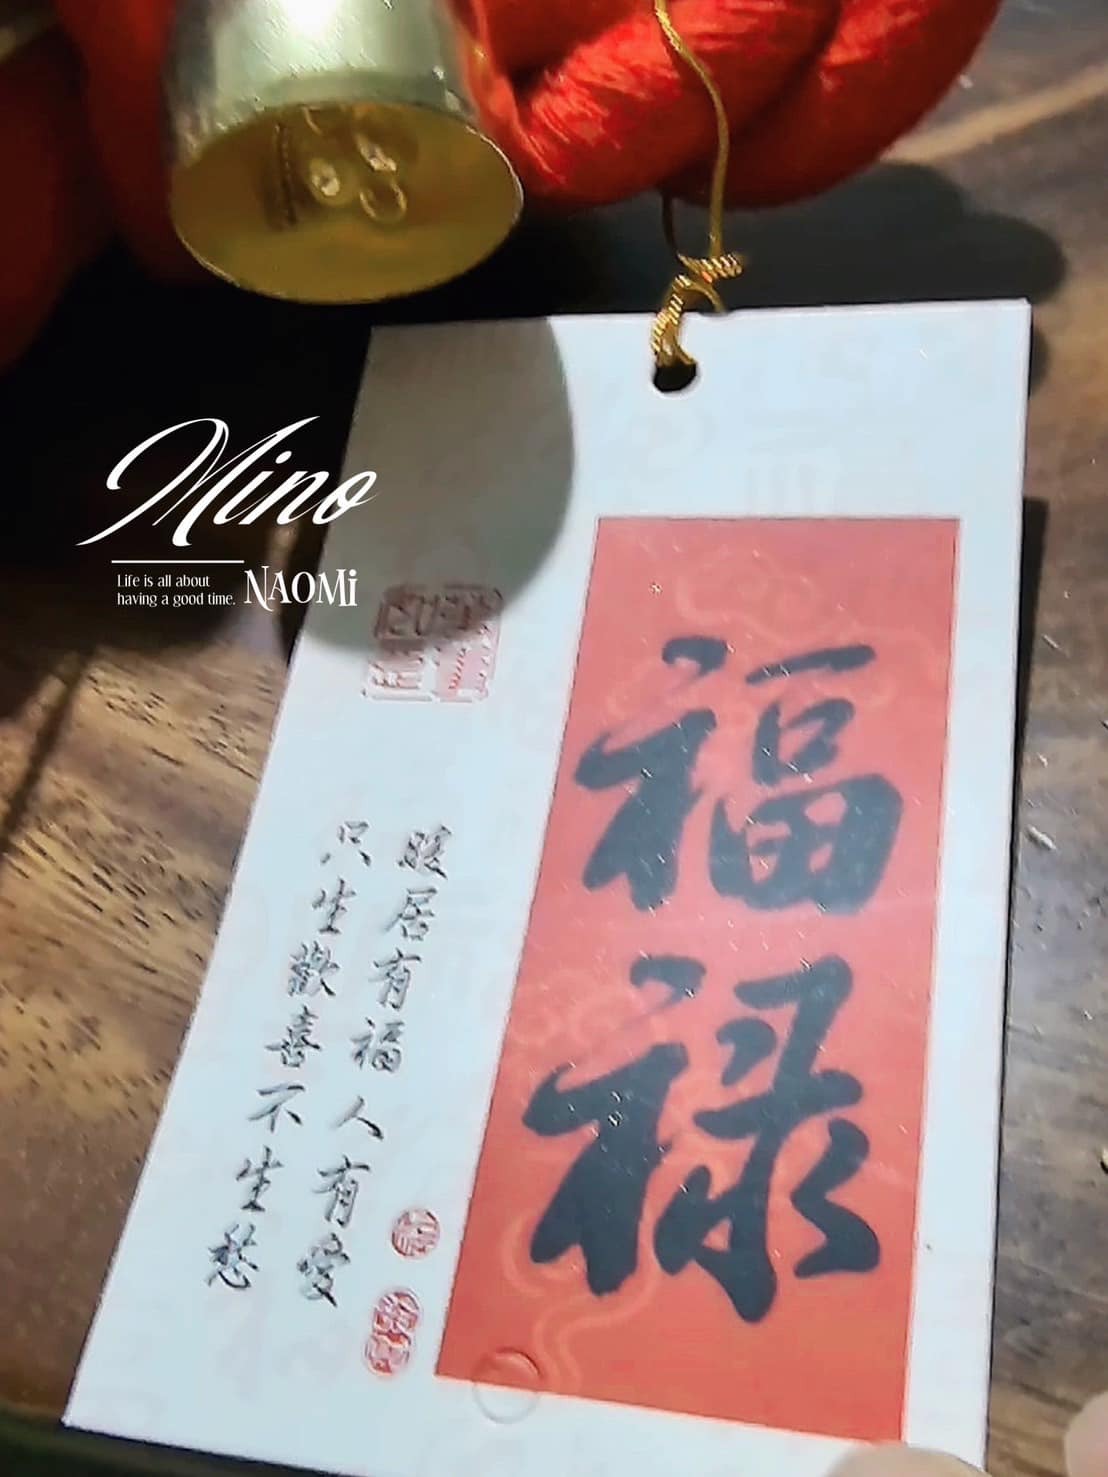 Nino
Life is all about
having a good time.
NAOMi
福祿
暖居有福人有愛
只生歡喜不生愁